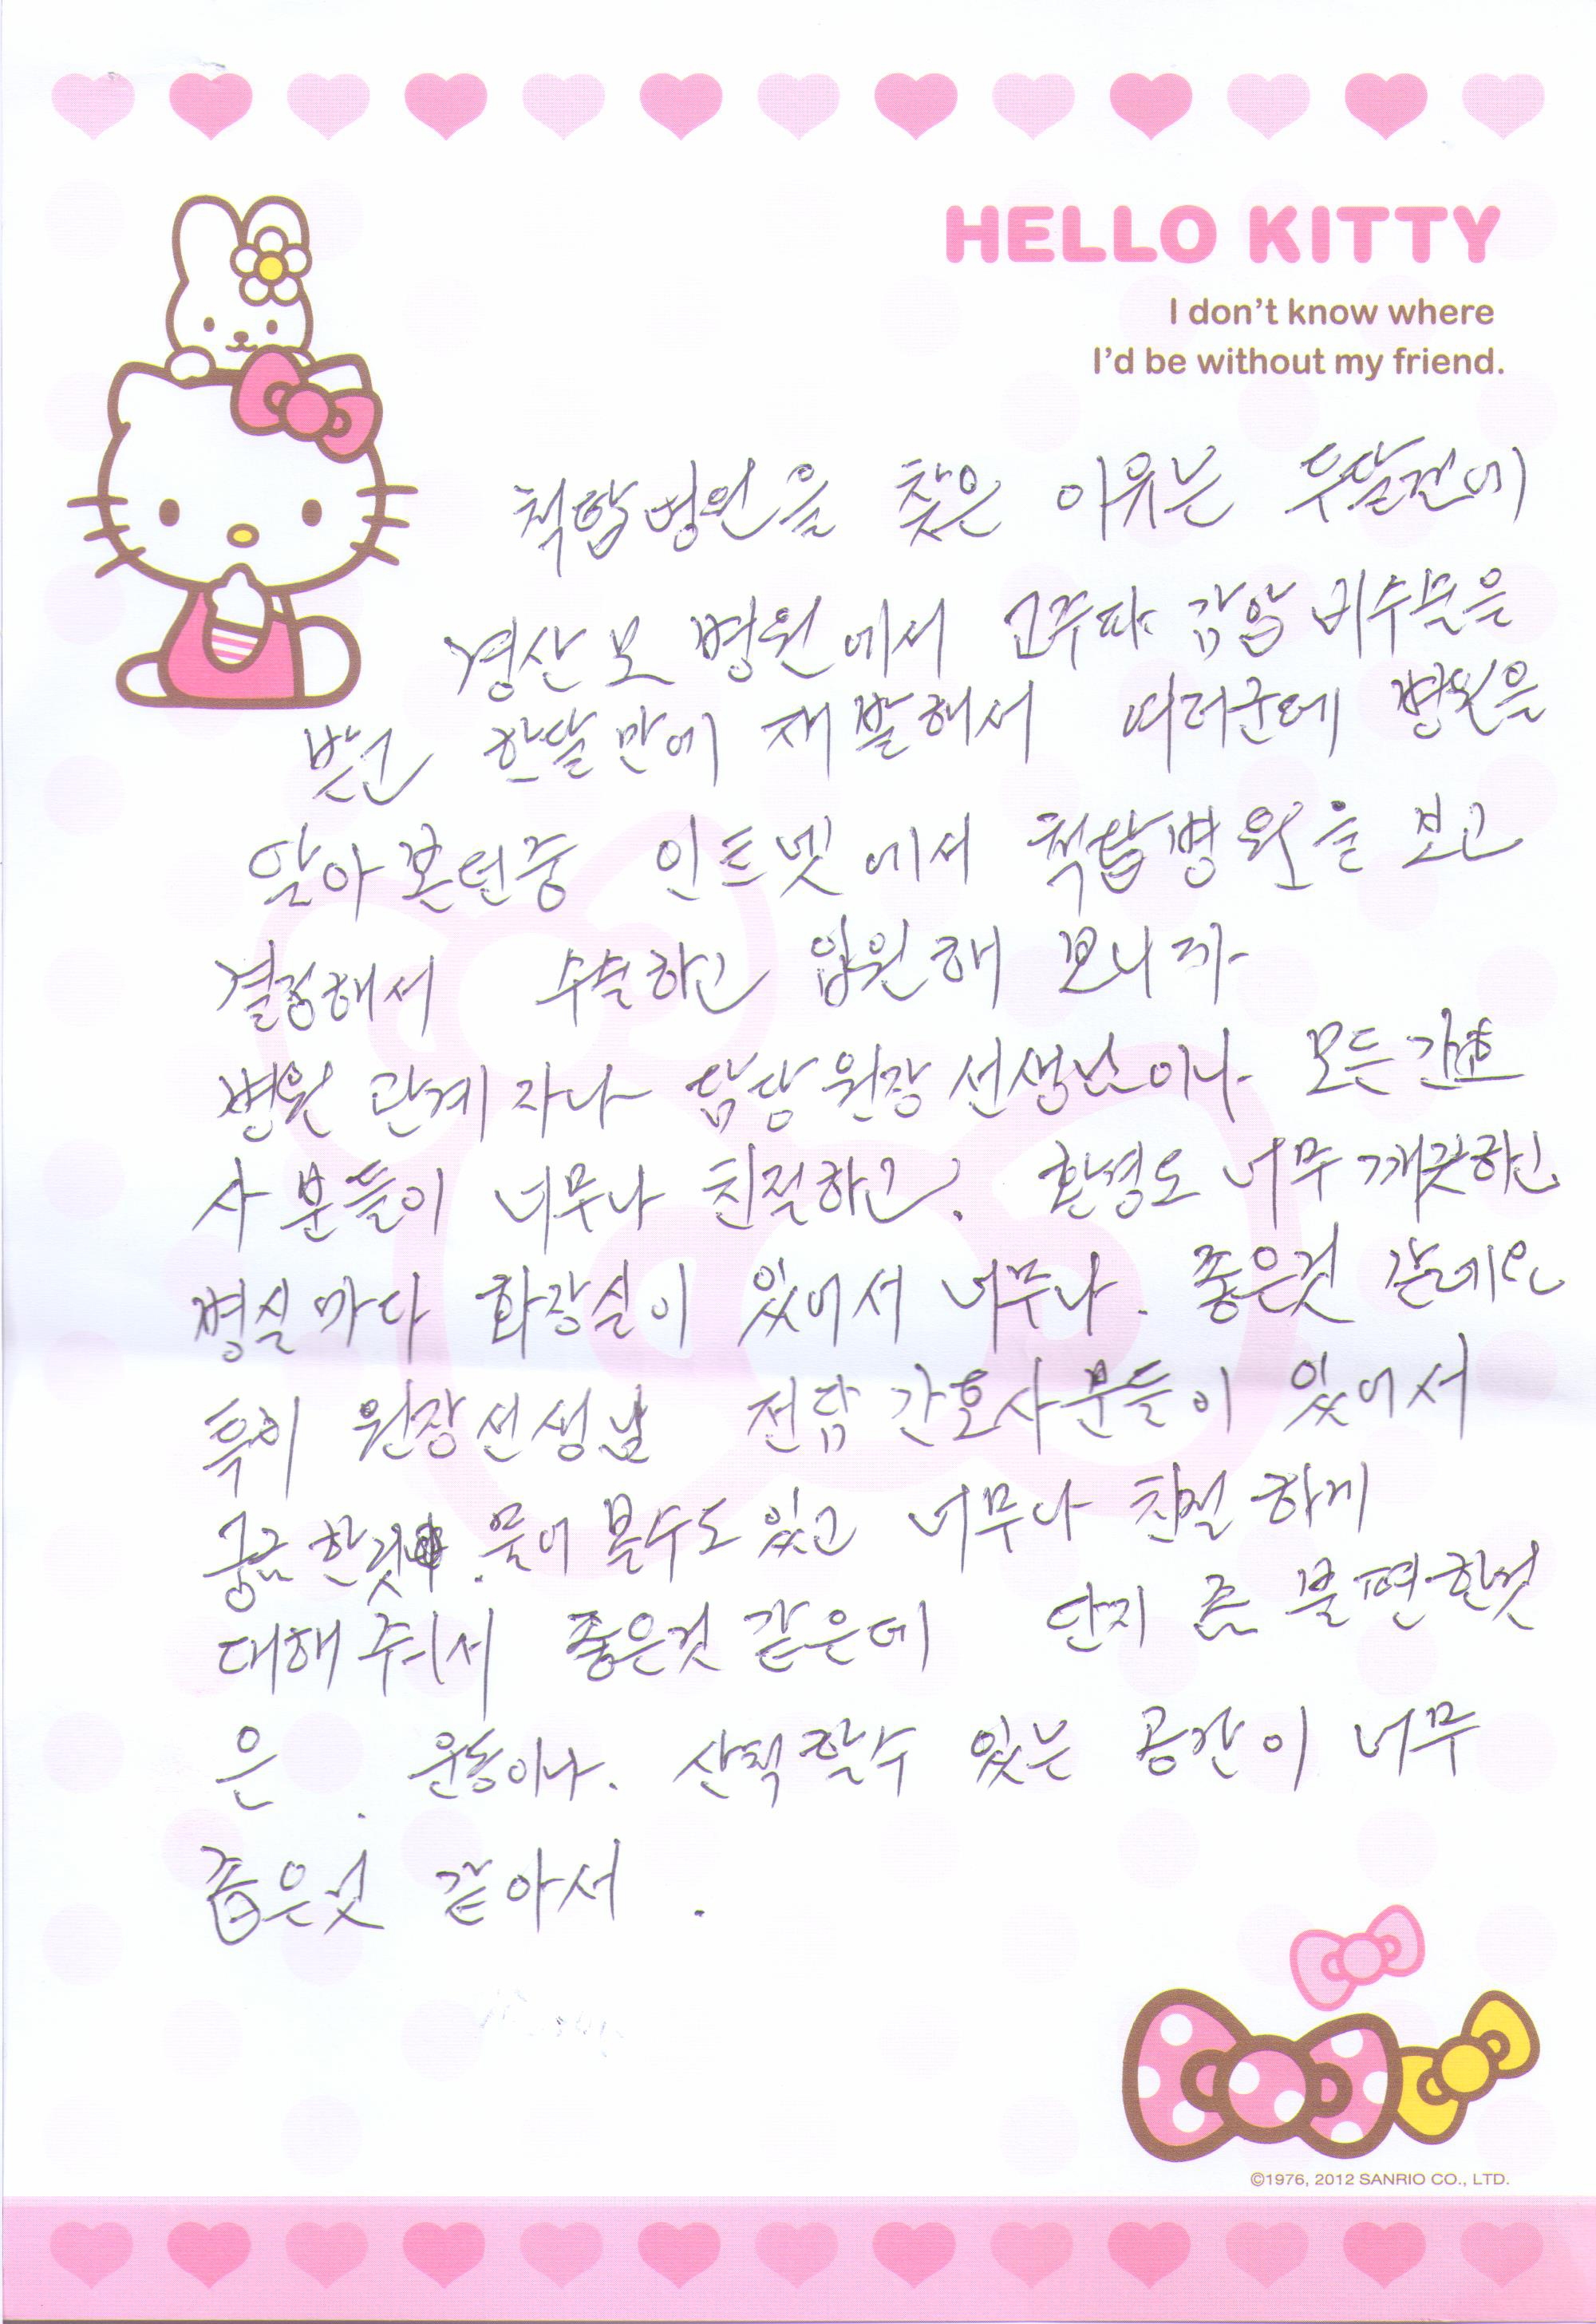 HELLO KITTY
I don't know where
I'd be without my friend.
척탑병원을 찾은 이유는 두달전에
경산모 병원에서 고주파 감압 비수술을
받고 한달만에 재발해서 여러군데 병원을
알아 본던중 인트넷에서 척탑병원을 보고
결정해서 수술하고 입원해 보니까
병원 관계자나 담당원장선생님이나 모든간호
사 분들이 너무나 친절하고. 환경도 너무 깨끗하고
병실마다 화장실이 있어서 너무나. 좋은것 같네요
특히 원장선생님 전담 간호사분들이 있어서
궁금한것. 물어 볼수도 있고 너무나 친절하게
대해줘서 좋은것 같은데 단지 좀 불편한것
은. 운동이나. 산책할수 있는 공간이 너무
좁은것 같아서.
©1976, 2012 SANRIO CO., LTD.